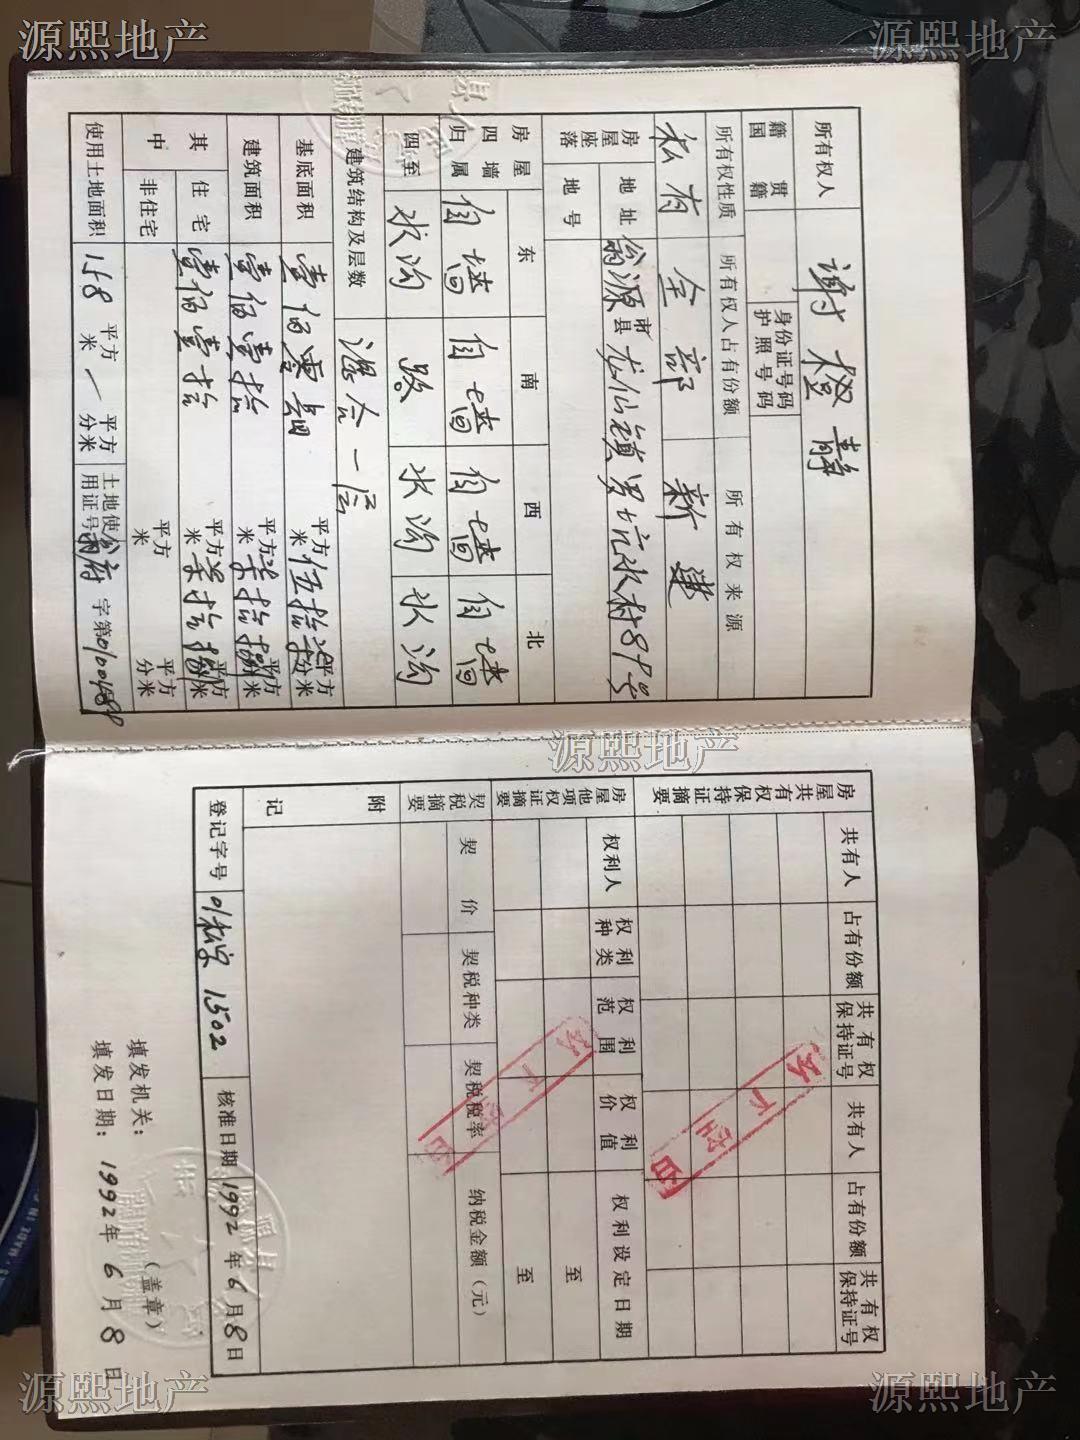 源熙地产
源熙地产
所有权人 谢橙静
籍贯 国籍 身份证号码 护照号码
所有权性质 所有权人占有份额 所有权来源
私有 全部 新建
房屋座落 地址 翁源市县龙仙镇 水村89号
地号
房屋四墙归属 东 南 西 北
自墙 自墙 自墙 自墙
四至 水沟 路 水沟 水沟
建筑结构及层数 混合一层
基底面积 壹佰零 平方米 伍拾 平方分米
建筑面积 壹佰壹拾 平方米 柒拾捌 平方分米
其中 住宅 壹佰壹拾 平方米 柒拾捌 平方分米
非住宅 平方米 平方分米
使用土地面积 158 平方米 平方分米 土地使用证号 府 字第0100489
源熙地产
房屋共有权保持证摘要 共有人 占有份额 共有权保持证号 共有人 占有份额 共有权保持证号
房屋他项权证摘要 权利人 权利种类 权利范围 权利价值 权利设定日期
至
至
契税摘要 契价 契税种类 契税税率 纳税金额(元)
附记
登记字号 01私字1502 核准日期 1992年6月8日
填发机关: (盖章)
填发日期: 1992年6月8日
源熙地产
源熙地产